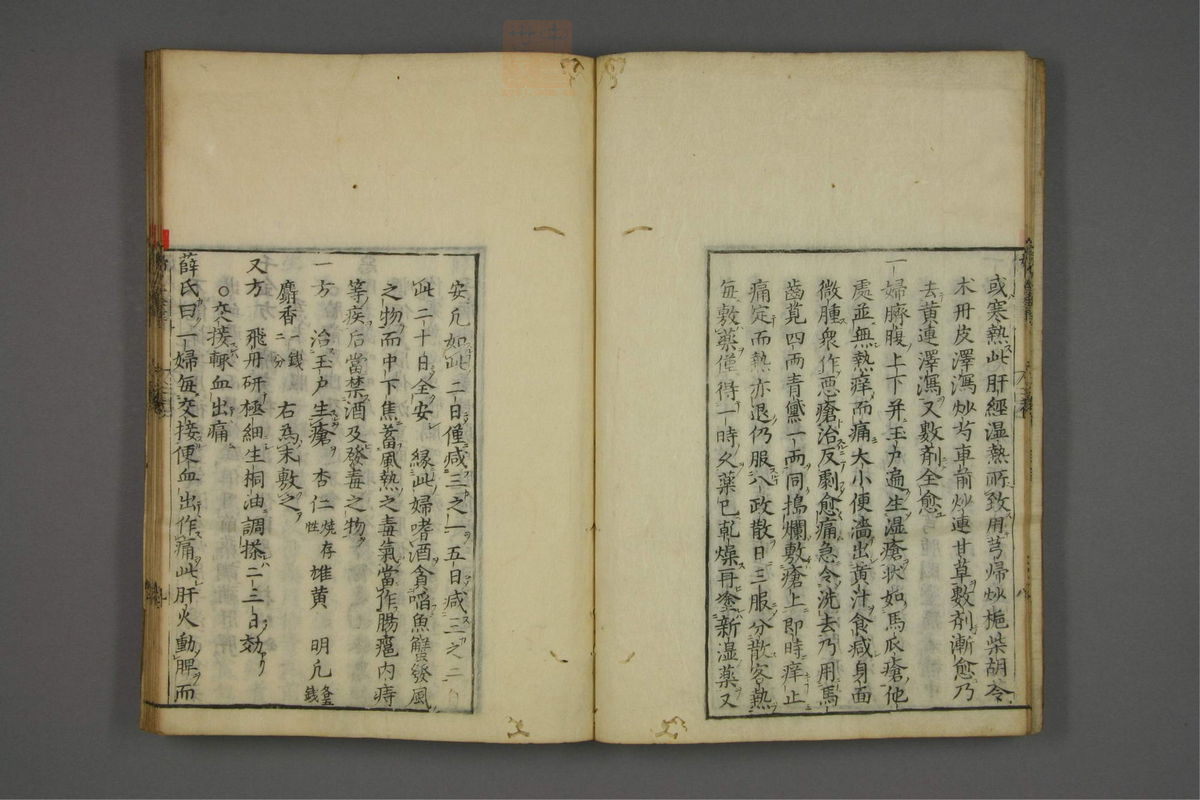 或寒熱此肝經湿熱所致用芎歸炒梔柴胡苓
朮丹皮澤瀉炒芍車前炒連甘草數剤漸愈乃
去黄連澤瀉又數剤全愈
一婦臍腹上下并玉户遍生湿瘡状如馬瓜瘡他
處並無熱痒而痛大小便濇出黄汁食减身面
微腫衆作悪瘡治反劇愈痛急令洗去乃用馬
齒莧四两青黛一两同搗爛敷瘡上即時痒止
痛定而熱亦退仍服八政散日三服分散客熱
毎敷薬僅得一時久薬已乾燥再塗新湿薬又
安凢如此二日僅减三之一五日减三之二自
此二十日全安 縁此婦嗜酒貪啗魚蠏發風
之物而中下焦蓄風熱之毒氣當作腸癰内痔
等疾后當禁酒及發毒之物
一方 治玉户生瘡 杏仁焼存性 雄黄 明凢各五錢
麝香二分 右為末敷之
又方 飛丹研極細生桐油調搽二三日効
○交接輙血出痛
薛氏曰一婦毎交接便血出作痛此肝火動脾而